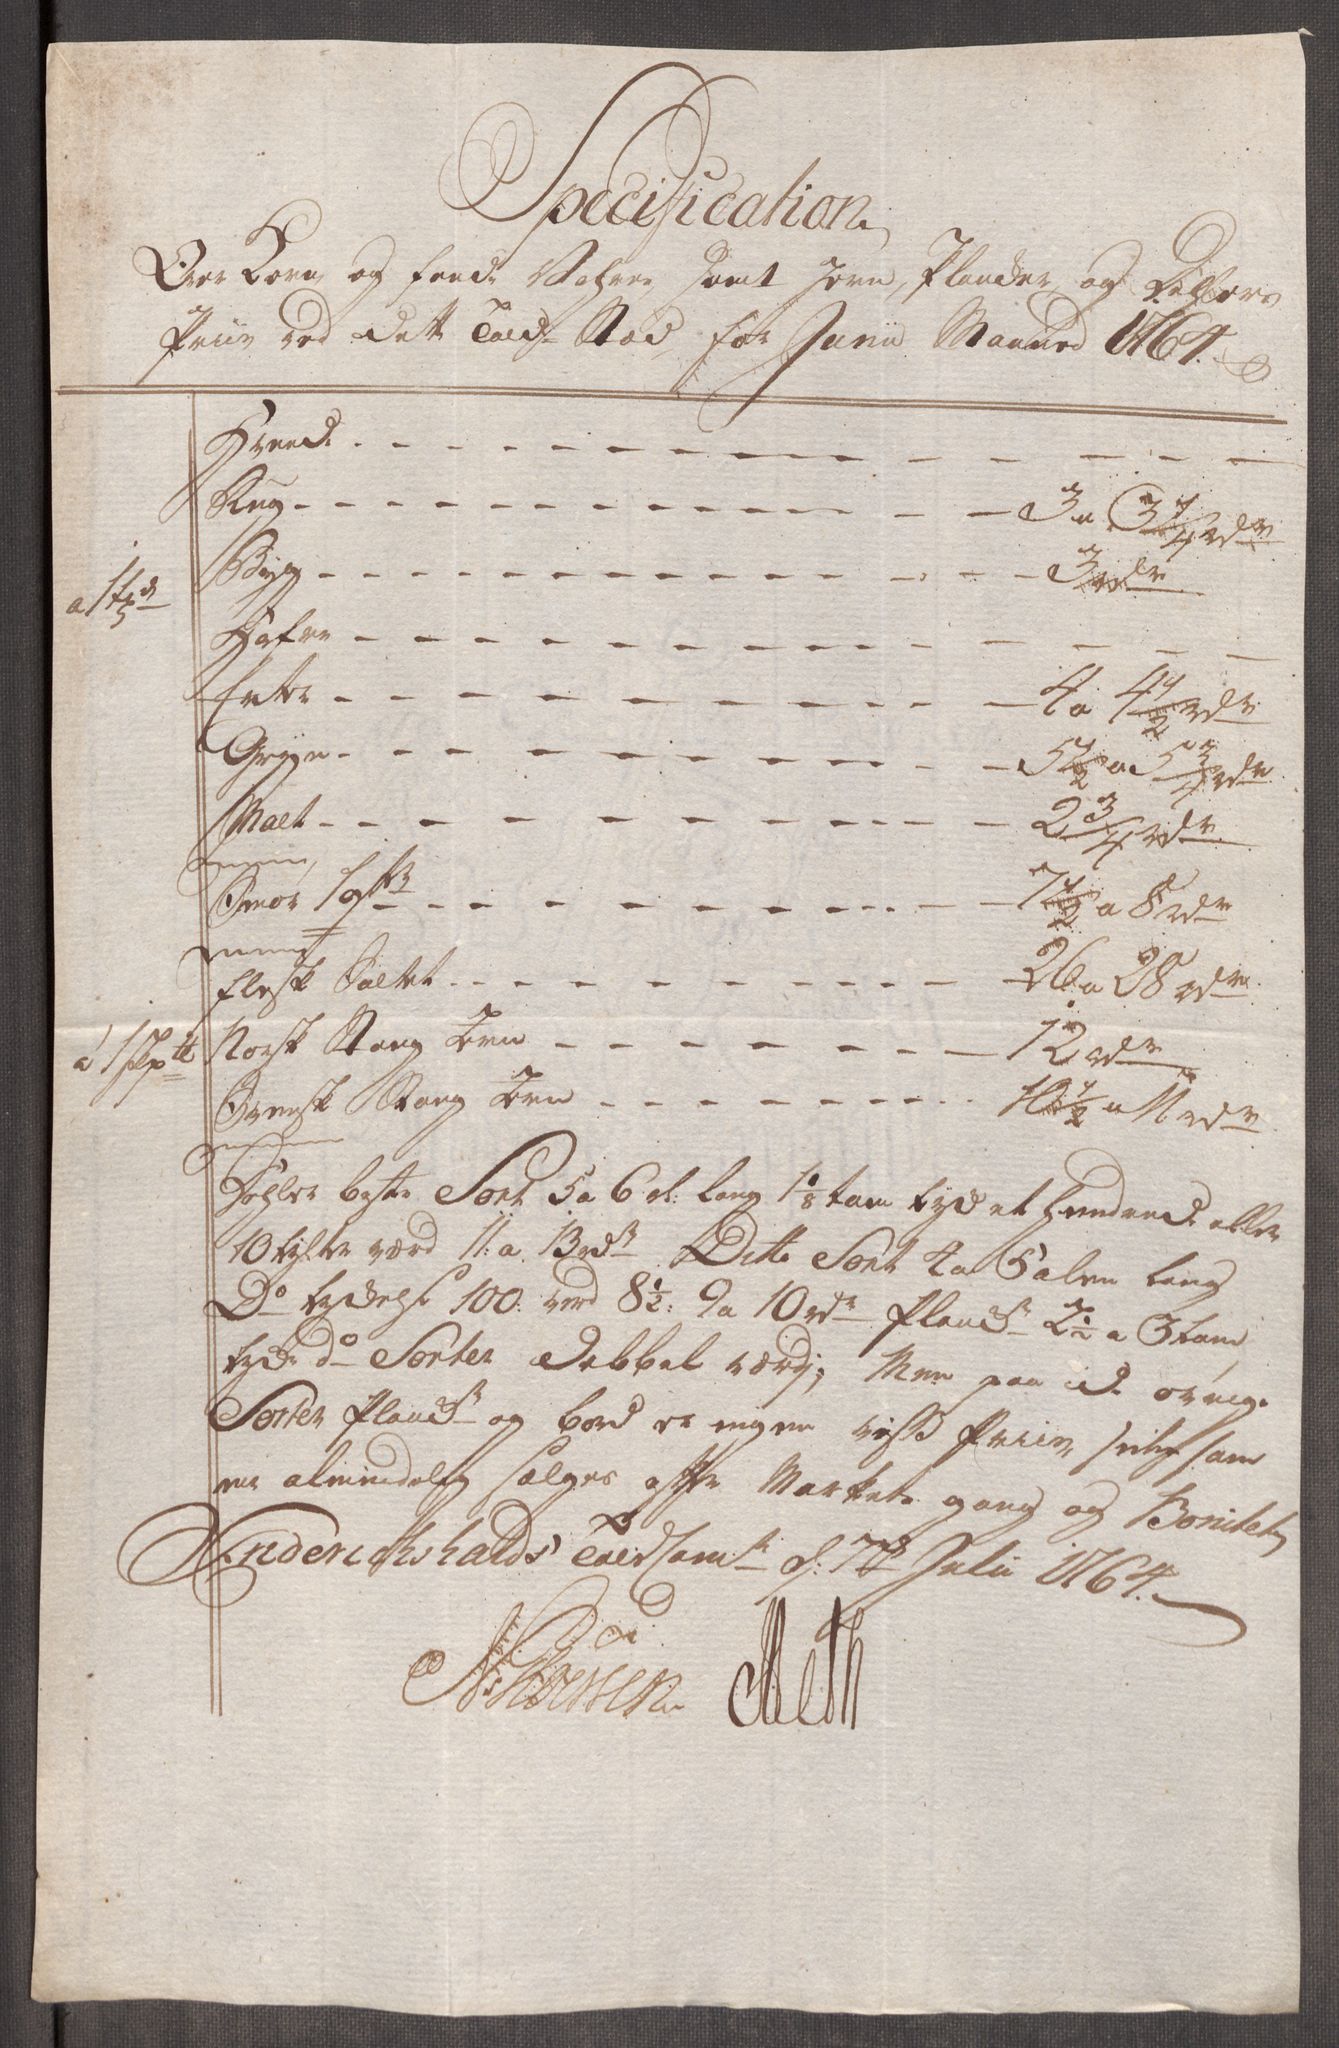 Specification
Over Korn og feede Vahre samt Jern, Plancker og Dehlers
Priis ved dette Told-Stæd for Junii Maaned 1764.
Hvede - - -
Rug - - - 3 a 3 1/4 rdr
a 1 td Byg - - - 3 rdr
Hafre - - -
Erter - - - 4 a 4 1/2 rdr
Gryn - - - 5 1/2 a 5 3/4 rdr
Malt - - - 2 3/4 rdr
Smør 1 - - - 7 1/2 a 8 rdr
Flesk Saltet - - - 26 a 28 rdr
a 1 Skp Norsk Stang Jern - - - 12 rdr
Svensk Stang Jern - - - 10 1/2 a 11 rdr
Dehler beste Sort 5 a 6 al: lang 1 1/8 tom tyk et hundrede eller
10 tylter værd 11: a 13 rdr Ditto Sort 4 a 5 alen lang
Do tydelse 100: værd 8 1/2: 9 a 10 rdr Planck 2 1/2 a 3 tom
tyk do Sorter dobbel værdj; Men paa de øvrige
Sorter Planck og bord er ingen viss Priis, som
en almindelig sælges efter Markets gang og Bonitet
Friderichshalds Told Cam d: 7de Julii 1764.
N Thoresen Meth